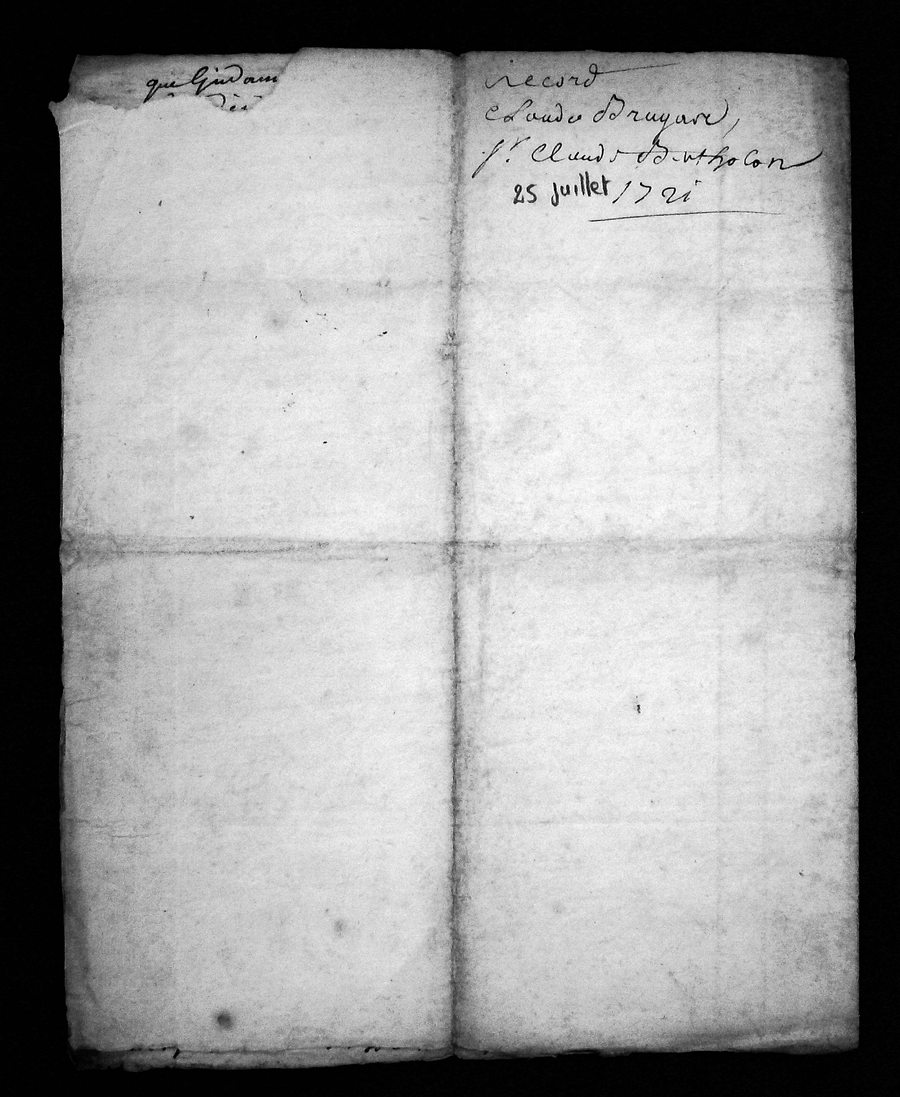 que
record
Claude Bruyare,
Sr. Claude Bertholon
25 juillet 1721